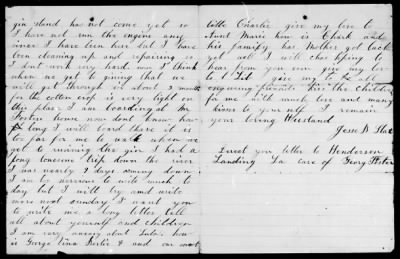 gin stand has not come yet so
I have not run the engine any
since I have been here but I have
been cleaning up and repairing so
I dont work very hard now I think
when we get to gining that we
will get through in about 2 months
for the cotton crop is very light on
this place I am boarding at Mr
Porters house now dont know how
long I will board there it is
to far for me to walk when we
get to running the gin I had a
long lonesome trip down the river
I was nearly 7 days coming down
I am too nervous to write much to
day but I will try and write
more next sunday I want you
to write me a long letter tell
all about yourself and children
I am very uneasy about Lula how
is George Vina Bertie & and our sweet
little Charlie give my love to
Aunt Marie how is Clark and
his family has Mother got back
yet well I will close hoping to
hear from you soon give my love
to give my to all
enquiring friends kiss the children
for me with much love and many
kisses to yourself I remain
your loving Husband
Jesse B
Direct you letter to Henderson
Landing La care of George Porter